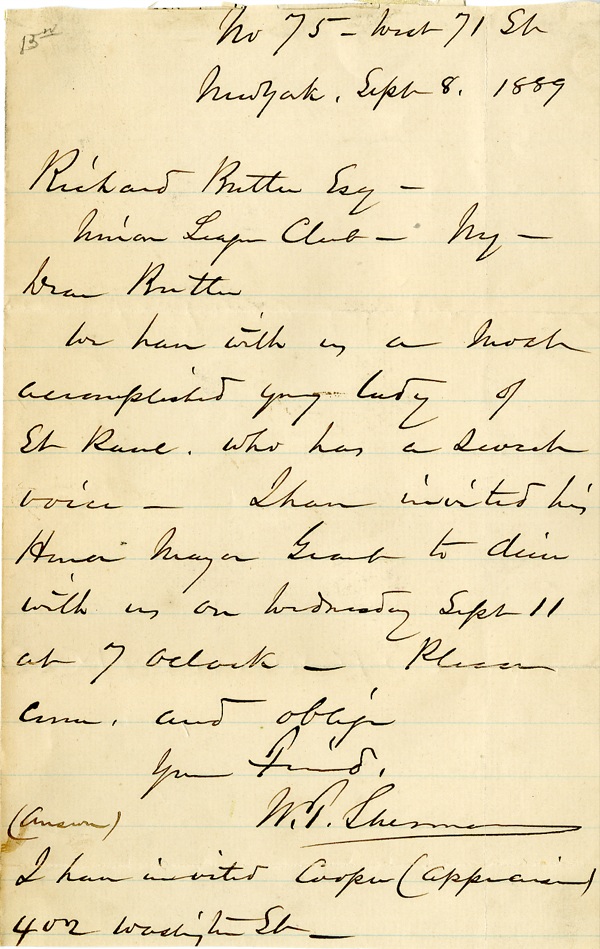 No 75 - West 71 St
New York, Sept 8, 1889
Richard Butler Esq -
Union League Club - Ny -
Dear Butler
We have with us a most
accomplished young lady of
St Paul. who has a sweet
voice - I have invited his
Honor Mayor Grant to dine
with us on Wednesday Sept 11
at 7 oclock - Please
come, and oblige
Your Friend,
W. T. Sherman
(Answer)
I have invited Cooper (appraiser)
402 Washington St -